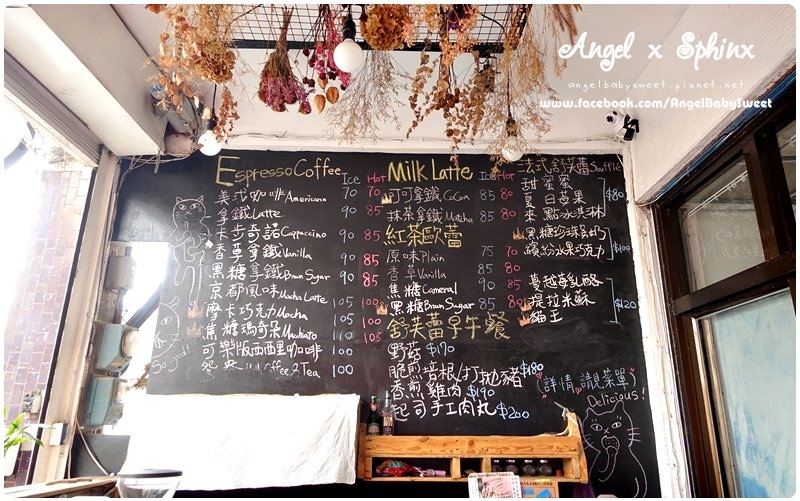 Angel x Sphinx
angelbabysweet.pixnet.net
www.facebook.com/AngelBabySweet
Espresso Coffee Ice Hot
美式咖啡 Americano 70 70
拿鐵 Latte 90 85
卡布奇諾 Cappuccino 90 85
香草拿鐵 Vanilla 90 85
黑糖拿鐵 Brown Sugar 90 85
京都風味 Mocha Latte 105 100
摩卡巧克力 Mocha 105 100
焦糖瑪奇朵 Macchiato 110 105
可樂版西西里咖啡 100
Coffee 2 Tea 100
So good!
Milk Latte Ice Hot
可可拿鐵 CoCoa 85 80
抹茶拿鐵 Matcha 85 80
紅茶歐蕾
原味 Plain 75 70
香草 Vanilla 85 80
焦糖 Caramel 85 80
黑糖 Brown Sugar 85 80
舒芙蕾早午餐
野菇 $170
脆煎培根/打拋豬 $180
香煎雞肉 $190
起司手工肉丸 $200
法式舒芙蕾 Souffle
甜蜜蜜
夏日莓果
來點冰淇淋
$80
黑糖珍珠奶
繽紛水果巧克力
$100
蔓越莓乳酪
提拉米蘇
貓王
$120
(詳情請見菜單)
Delicious!